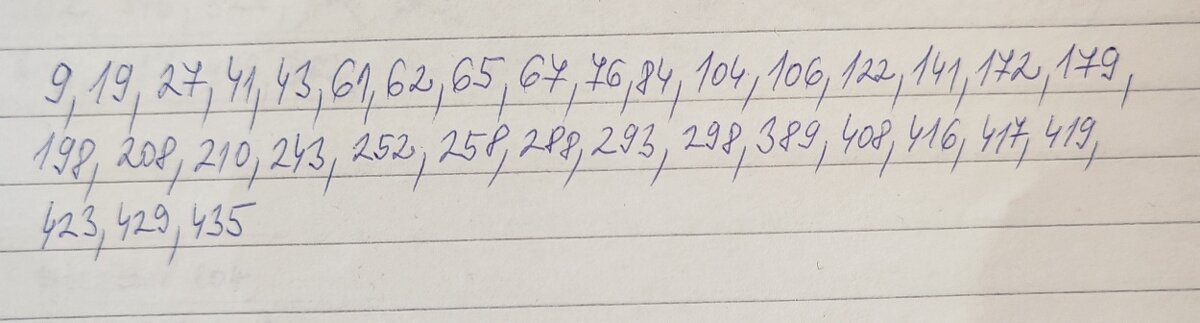 9, 19, 27, 41, 43, 61, 62, 65, 67, 76, 84, 104, 106, 122, 141, 172, 179,
198, 208, 210, 243, 252, 258, 288, 293, 298, 389, 408, 416, 417, 419,
423, 429, 435